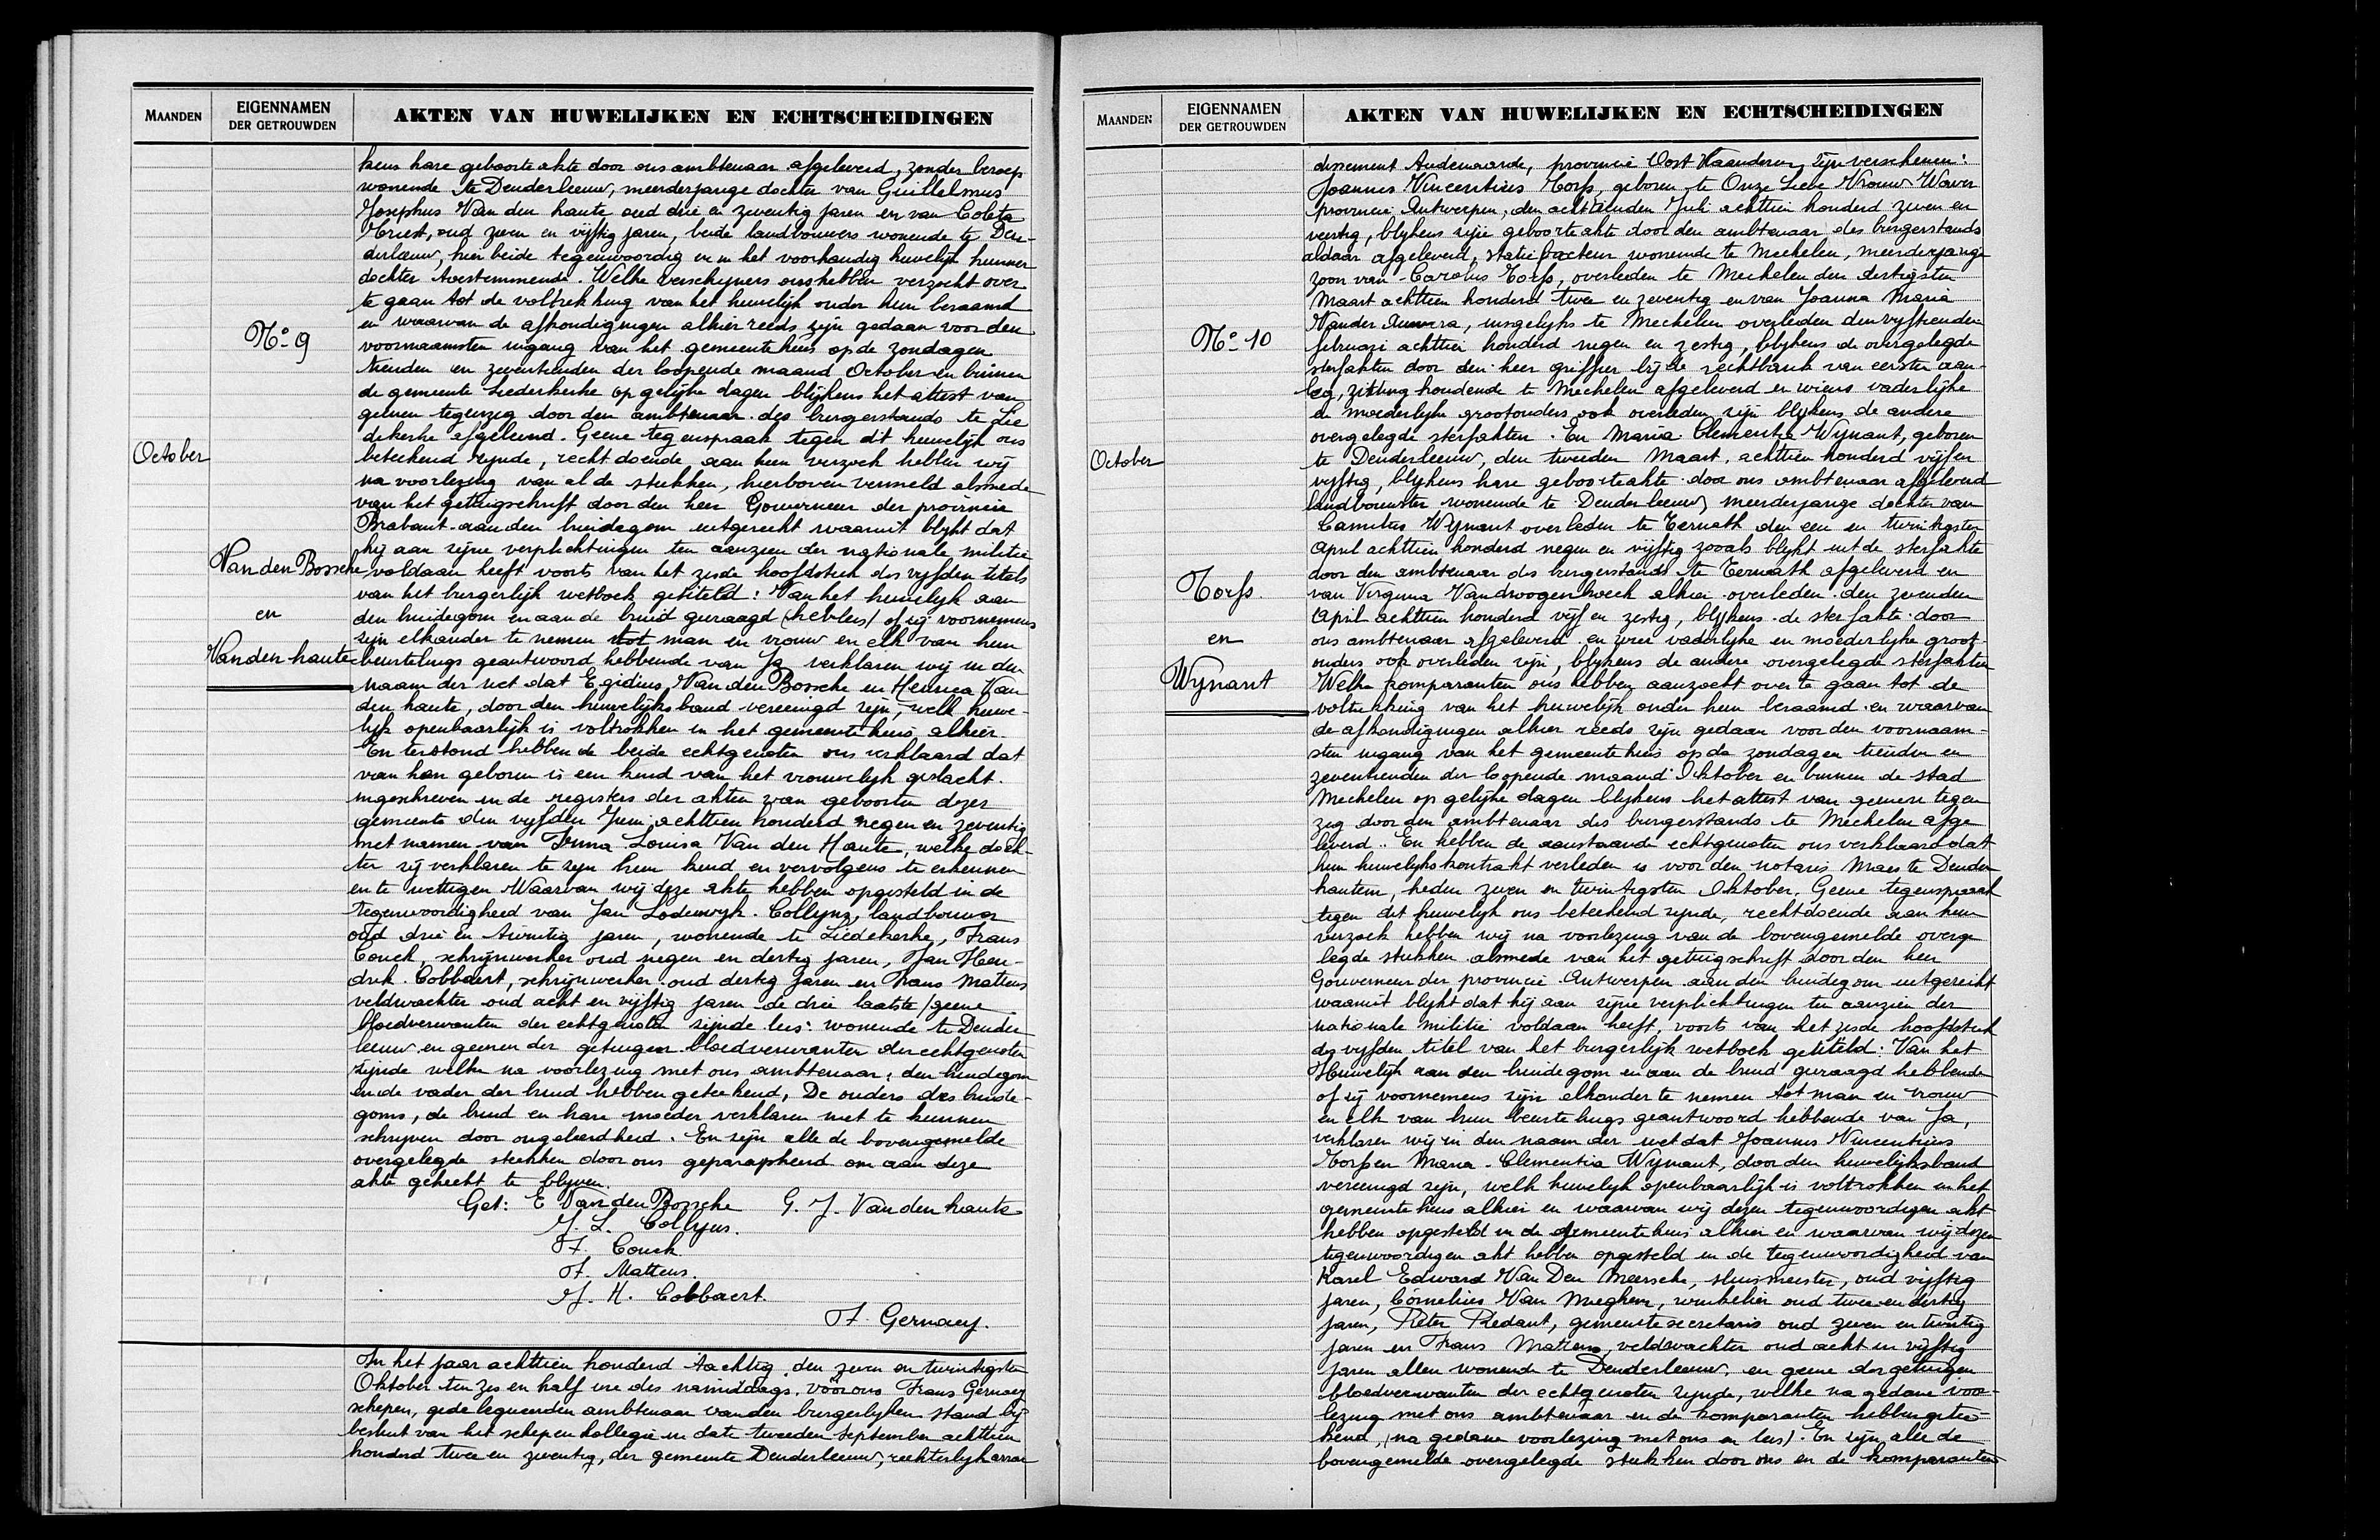 MAANDEN
EIGENNAMEN
DER GETROUWDEN
AKTEN VAN HUWELIJKEN EN ECHTSCHEIDINGEN
October
No 9
Van den Bossche
en
Van den haute
kens hare geboorte akte door ons ambtenaar afgeleverd, zonder beroep
wonende te Denderleeuw, meerderjarige dochter van Guillelmus
Josephus Van den haute oud drie en zeventig jaren en van Coleta
Triest, oud zeven en vijftig jaren, beide landbouwers wonende te Den-
derleeuw, hier beide tegenwoordig en in het voorhandig huwelijk hunner
dochter toestemmende. Welke verschijners ons hebben verzocht over
te gaan tot de voltrekking van het huwelijk onder hun beraamd
en waarvan de afkondigingen alhier reeds zijn gedaan voor den
voornaamsten ingang van het gemeentehuis op de zondagen
tienden en zeventienden der loopende maand October en binnen
de gemeente Liederkerke op gelijke dagen blijkens het attest van
geenen tegenzeg door den ambtenaar des burgerstands te Lie
dekerke afgeleverd. Geene tegenspraak tegen dit huwelijk ons
beteekend zijnde, recht doende aan hun verzoek hebben wij
na voorlezing van al de stukken, hierboven vermeld alsmede
van het getuigschrift door den heer Gouverneur der provincie
Brabant aan den bruidegom uitgereikt waaruit blijkt dat
hij aan zijne verplichtingen ten aanzien der nationale militie
voldaan heeft voorts van het zesde hoofdstuk des vijfden titels
van het burgerlijk wetboek getiteld: Van het huwelijk aan
den bruidegom en aan de bruid gevraagd (hebbens) of zij voornemens
zijn elkander te nemen tot man en vrouw en elk van hun
beurtelings geantwoord hebbende van Ja verklaren wij in den
naam der wet dat Egidius Van den Bossche en Henrica Van
den haute, door den huwelijksband vereenigd zijn, welk huwe-
lijk openbaarlijk is voltrokken in het gemeentehuis alhier.
En terstond hebben de beide echtgenoten ons verklaard dat
van hen geboren is een kind van het vrouwelijk geslacht.
ingeschreven in de registers der akten van geboorten dezer
gemeente den vijfden Juni achttien honderd negen en zeventig
met namen van Irma Louisa Van den Haute, welke doch-
ter zij verklaren te zijn hun kind en vervolgens te erkennen
en te wettigen Waarvan wij deze akte hebben opgesteld in de
tegenwoordigheid van Jan Lodewijk Collyns, landbouwer
oud drie en twintig jaren, wonende te Liedekerke, Frans
Couck, schrijnwerker oud negen en dertig jaren, Jan Hen-
drik Cobbaert, schrijnwerker oud dertig jaren en Frans Mattens
veldwachter oud acht en vijftig jaren de drie laatste (geene
bloedverwanten der echtgenoten zijnde lees: wonende te Dender
leeuw en geenen der getuigen bloedverwanten der echtgenoten
zijnde welke na voorlezing met ons ambtenaar, den bruidegom
en de vader der bruid hebben geteekend, De ouders des bruide-
goms, de bruid en hare moeder verklaren niet te kunnen
schrijven door ongeleerdheid. En zijn alle de bovengemelde
overgelegde stukken door ons geparapheerd om aan deze
akte gehecht te blijven.
Get: E Van den Bossche G. J. Van den haute
J. L. Collyns.
F. Couck
F. Mattens.
J. H. Cobbaert.
F. Gernaey.
In het jaar achttien honderd tachtig den zeven en twintigsten
Oktober ten zes en half ure des namiddags, voor ons Frans Gernaey
schepen, gedelegueerden ambtenaar van den burgerlijken stand bij
besluit van het schepenkollegie in date tweeden September achttien
honderd twee en zeventig, der gemeente Denderleeuw, rechterlijk arron
MAANDEN
EIGENNAMEN
DER GETROUWDEN
AKTEN VAN HUWELIJKEN EN ECHTSCHEIDINGEN
October
No 10
Torfs.
en
Wynant
dissement Audenaarde, provincie Oost Vlaanderen, zijn verschenen:
Joannes Vincentius Torfs, geboren te Onze Lieve Vrouw Waver
provincie Antwerpen, den achttienden Juli achttien honderd zeven en
veertig, blijkens zijne geboorte akte door den ambtenaar des burgerstands
aldaar afgeleverd, statiefacteur wonende te Mechelen, meerderjarige
zoon van Carolus Torfs, overleden te Mechelen den dertigsten
Maart achttien honderd twee en zeventig en van Joanna Maria
Vander Auwera, insgelijks te Mechelen overleden den vijftienden
februari achttien honderd negen en zestig, blijkens de overgelegde
sterfakten door den heer griffier bij de rechtbank van eersten aan-
leg, zitting houdende te Mechelen afgeleverd en wiens vaderlijke
en moederlijke grootouders ook overleden zijn blijkens de andere
overgelegde sterfakten. En Maria Clementia Wynant, geboren
te Denderleeuw, den tweeden Maart, achttien honderd vijf en
vijftig, blijkens hare geboorteakte door ons ambtenaar afgeleverd
landbouwster wonende te Denderleeuw, meerderjarige dochter van
Camilus Wynant overleden te Ternath den een en twintigsten
April achttien honderd negen en vijftig zooals blijkt uit de sterfakte
door den ambtenaar des burgerstands te Ternath afgeleverd en
van Virginia Vandroogenbroeck alhier overleden den zevenden
April achttien honderd vijf en zestig, blijkens de sterfakte door
ons ambtenaar afgeleverd en wier vaderlijke en moederlijke groot
ouders ook overleden zijn, blijkens de andere overgelegde sterfakten
Welke komparanten ons hebben aanzocht over te gaan tot de
voltrekking van het huwelijk onder hun beraamd en waarvan
de afkondigingen alhier reeds zijn gedaan voor den voornaam-
sten ingang van het gemeentehuis op de zondagen tienden en
zeventienden der loopende maand Oktober en binnen de stad
Mechelen op gelijke dagen blijkens het attest van geenen tegen
zeg door den ambtenaar des burgerstands te Mechelen afge
leverd. En hebben de aanstaande echtgenoten ons verklaard dat
hun huwelijkskontrakt verleden is voor den notaris Maes te Dender
hautem, heden zeven en twintigsten Oktober. Geene tegenspraak
tegen dit huwelijk ons beteekend zijnde, rechtdoende aan hun
verzoek hebben wij na voorlezing van de bovengemelde overge
legde stukken alsmede van het getuigschrift door den heer
Gouverneur der provincie Antwerpen aan den bruidegom uitgereikt
waaruit blijkt dat hij aan zijne verplichtingen ten aanzien der
nationale militie voldaan heeft, voorts van het zesde hoofdstuk
des vijfden titel van het burgerlijk wetboek getiteld: Van het
Huwelijk aan den bruidegom en aan de bruid gevraagd hebbende
of zij voornemens zijn elkander te nemen tot man en vrouw
en elk van hun beurtelings geantwoord hebbende van Ja,
verklaren wij in den naam der wet dat Joannes Vincentius
Torfs en Maria Clementia Wynant, door den huwelijksband
vereenigd zijn, welk huwelijk openbaarlijk is voltrokken in het
gemeentehuis alhier en waarvan wij dezen tegenwoordigen akt
hebben opgesteld in de gemeentehuis alhier en waarvan wij dezen
tegenwoordigen akt hebben opgesteld in de tegenwoordigheid van
Karel Edward Van Den Meersche, sluismeester, oud vijftig
jaren, Cornelius Van Mieghem, winkelier oud twee en dertig
jaren, Pieter Redant, gemeente secretaris oud zeven en twintig
jaren en Frans Mattens, veldwachter oud acht en vijftig
jaren allen wonende te Denderleeuw, en geene der getuigen
bloedverwanten der echtgenoten zijnde, welke na gedane voor-
lezing met ons ambtenaar en de komparanten hebben getee
kend, (na gedane voorlezing met ons en lees). En zijn alle de
bovengemelde overgelegde stukken door ons en de komparanten